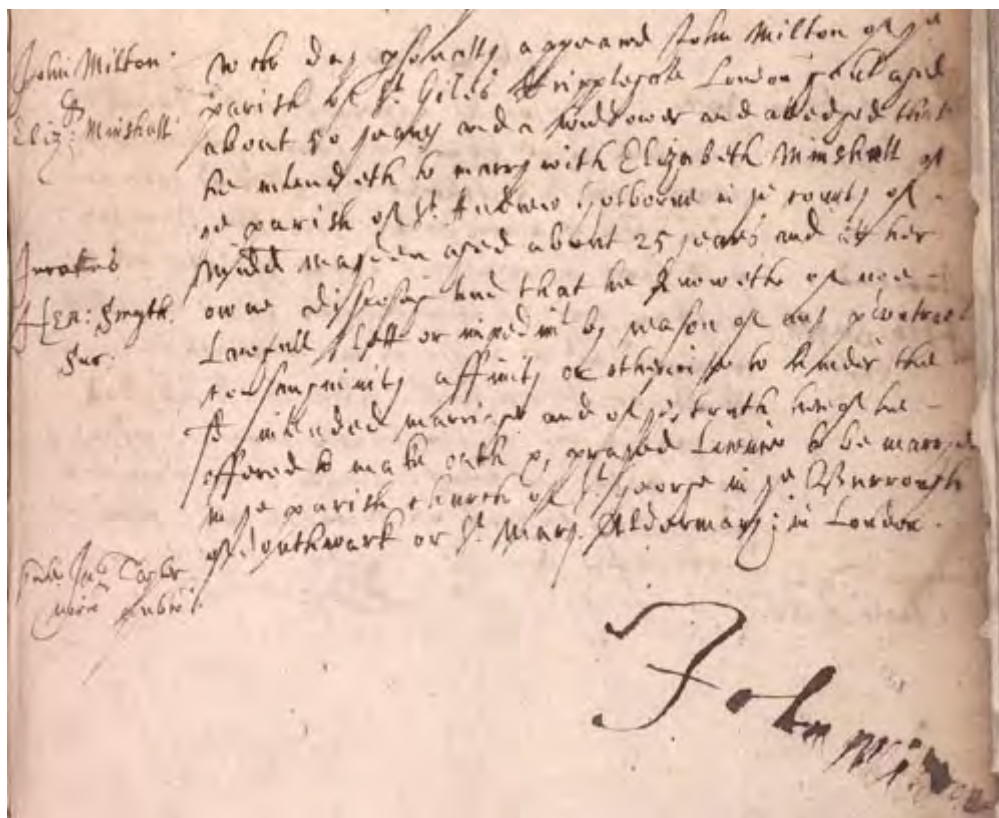 John Milton
&
Eliz: Minshull
Juratus
Hen: Smyth.
Sur.
Wch day p'sonally appeared John Milton of ye
parish of St. Giles Cripplegate London gent aged
about 50 yeares and a Widdower and alledged that
he intendeth to marry with Elizabeth Minshull of
ye parish of St. Andrew Holborne in ye County of
Midd Mayden aged about 25 yeares and att her
owne disposing and that he knoweth of noe
Lawfull lett or impedimt by reason of any p'contract
consanguinity affinity or otherwise to hinder the
sd intended marriage and of ye truth hereof he
offered to make oath & prayed Licence to be marryed
in ye parish church of St. George in ye Burrough
of Southwark or St. Mary Aldermary in London.
John Milton